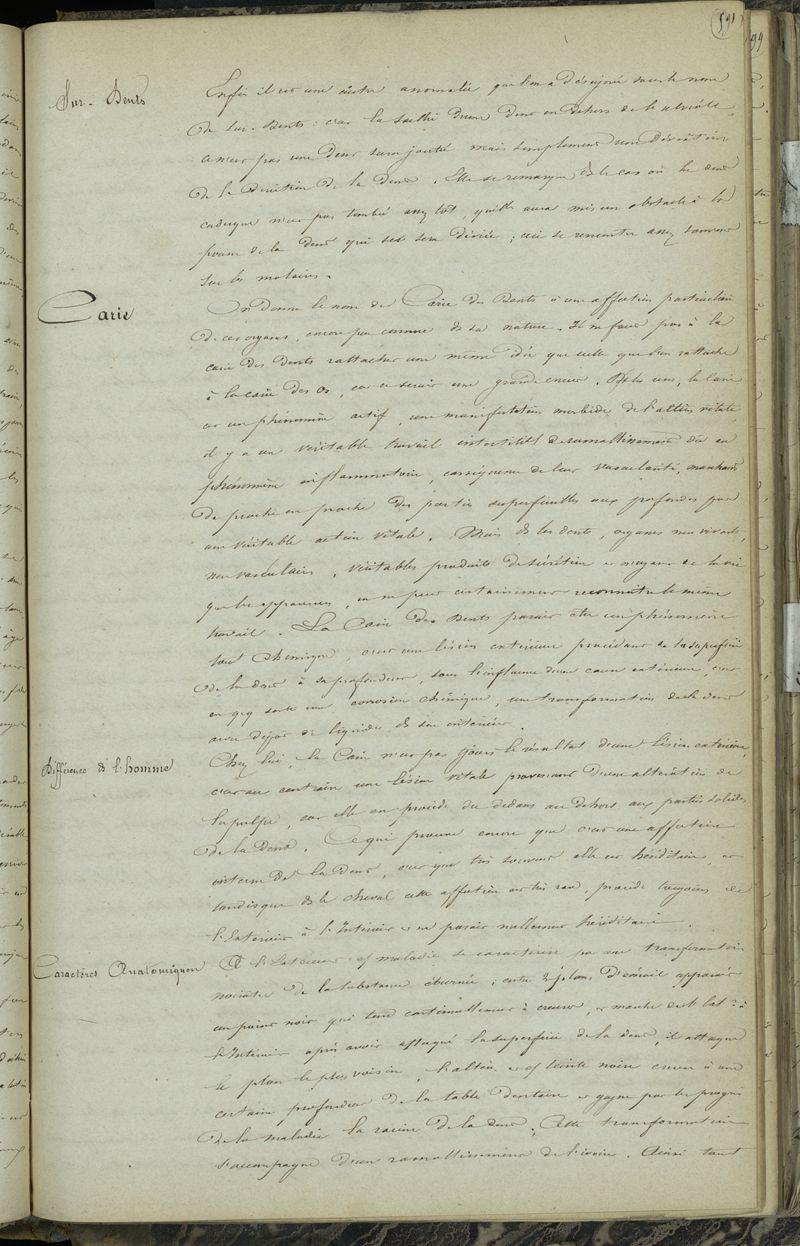 591
Sur-Dents
Enfin il est une autre anomalie que l'on a désignée sous le nom
de Sur-Dents : c'est la saillie d'une dent en dehors de l'alvéole,
ce n'est pas une dent surajoutée mais simplement une déviation
de la direction de la dent. Elle se remarque ds le cas où la dent
caduque n'est pas tombée assez tôt, qu'elle aura mis un obstacle à la
pousse de la dent qui sera déviée ; ceci se rencontre assez souvent
sur les molaires.
Carie
On donne le nom de Carie des Dents à une affection particulière
de ces organes, encore peu connue ds sa nature. Il ne faut pas à la
carie des Dents rattacher une même idée que celle que l'on rattache
à la carie des os, car ce serait une grande erreur. Ds les uns, la Carie
est un phénomène actif, une manifestation morbide de l'action vitale
il y a un véritable travail interstitiel de ramollissement dû au
phénomène inflammatoire, conséquence de leur vascularité, marchant
de proche en proche des parties superficielles aux profondes par
une véritable action vitale. Mais ds les dents, organes non vivants,
non vasculaires, véritables produits de sécrétion et n'ayant de la vie
que les apparences, on ne peut certainement reconnaître le même
travail. La Carie des Dents paraît être un phénomène
tout chimique, c'est une lésion extérieure procédant de la superficie
de la dent à sa profondeur, sous l'influence d'une cause extérieure, c'est
en qq sorte une corrosion chimique, une transformation de la dent
avec dépôt de liquide ds son intérieur.
Différence ds l'homme
Chez lui, la Carie n'est pas tjours le résultat d'une lésion extérieure,
c'est au contraire une lésion vitale provenant d'une altération de
la pulpe, car elle en procède du dedans au dehors aux parties solides
de la Dent. Ce qui prouve encore que c'est une affection
interne de la Dent, c'est que très souvent elle est héréditaire,
tandis que ds le cheval cette affection est très rare, procède toujours de
l'Extérieur à l'Intérieur et ne paraît nullement héréditaire.
Caractères Anatomiques
A l'Extérieur, cf maladie se caractérise par une transformation
noirâtre de la substance éburnée ; entre 2 plans d'émail apparaît
un point noir qui tend continuellement à creuser, et marche de
l'Intérieur après avoir attaqué la superficie de la dent, il attaque
le plan le plus voisin, l'altère et cf teinte noire creuse à une
certaine profondeur de la table dentaire et gagne par les progrès
de la maladie la racine de la dent ; Cette transformation
s'accompagne d'un ramollissement de l'ivoire. Ainsi tout